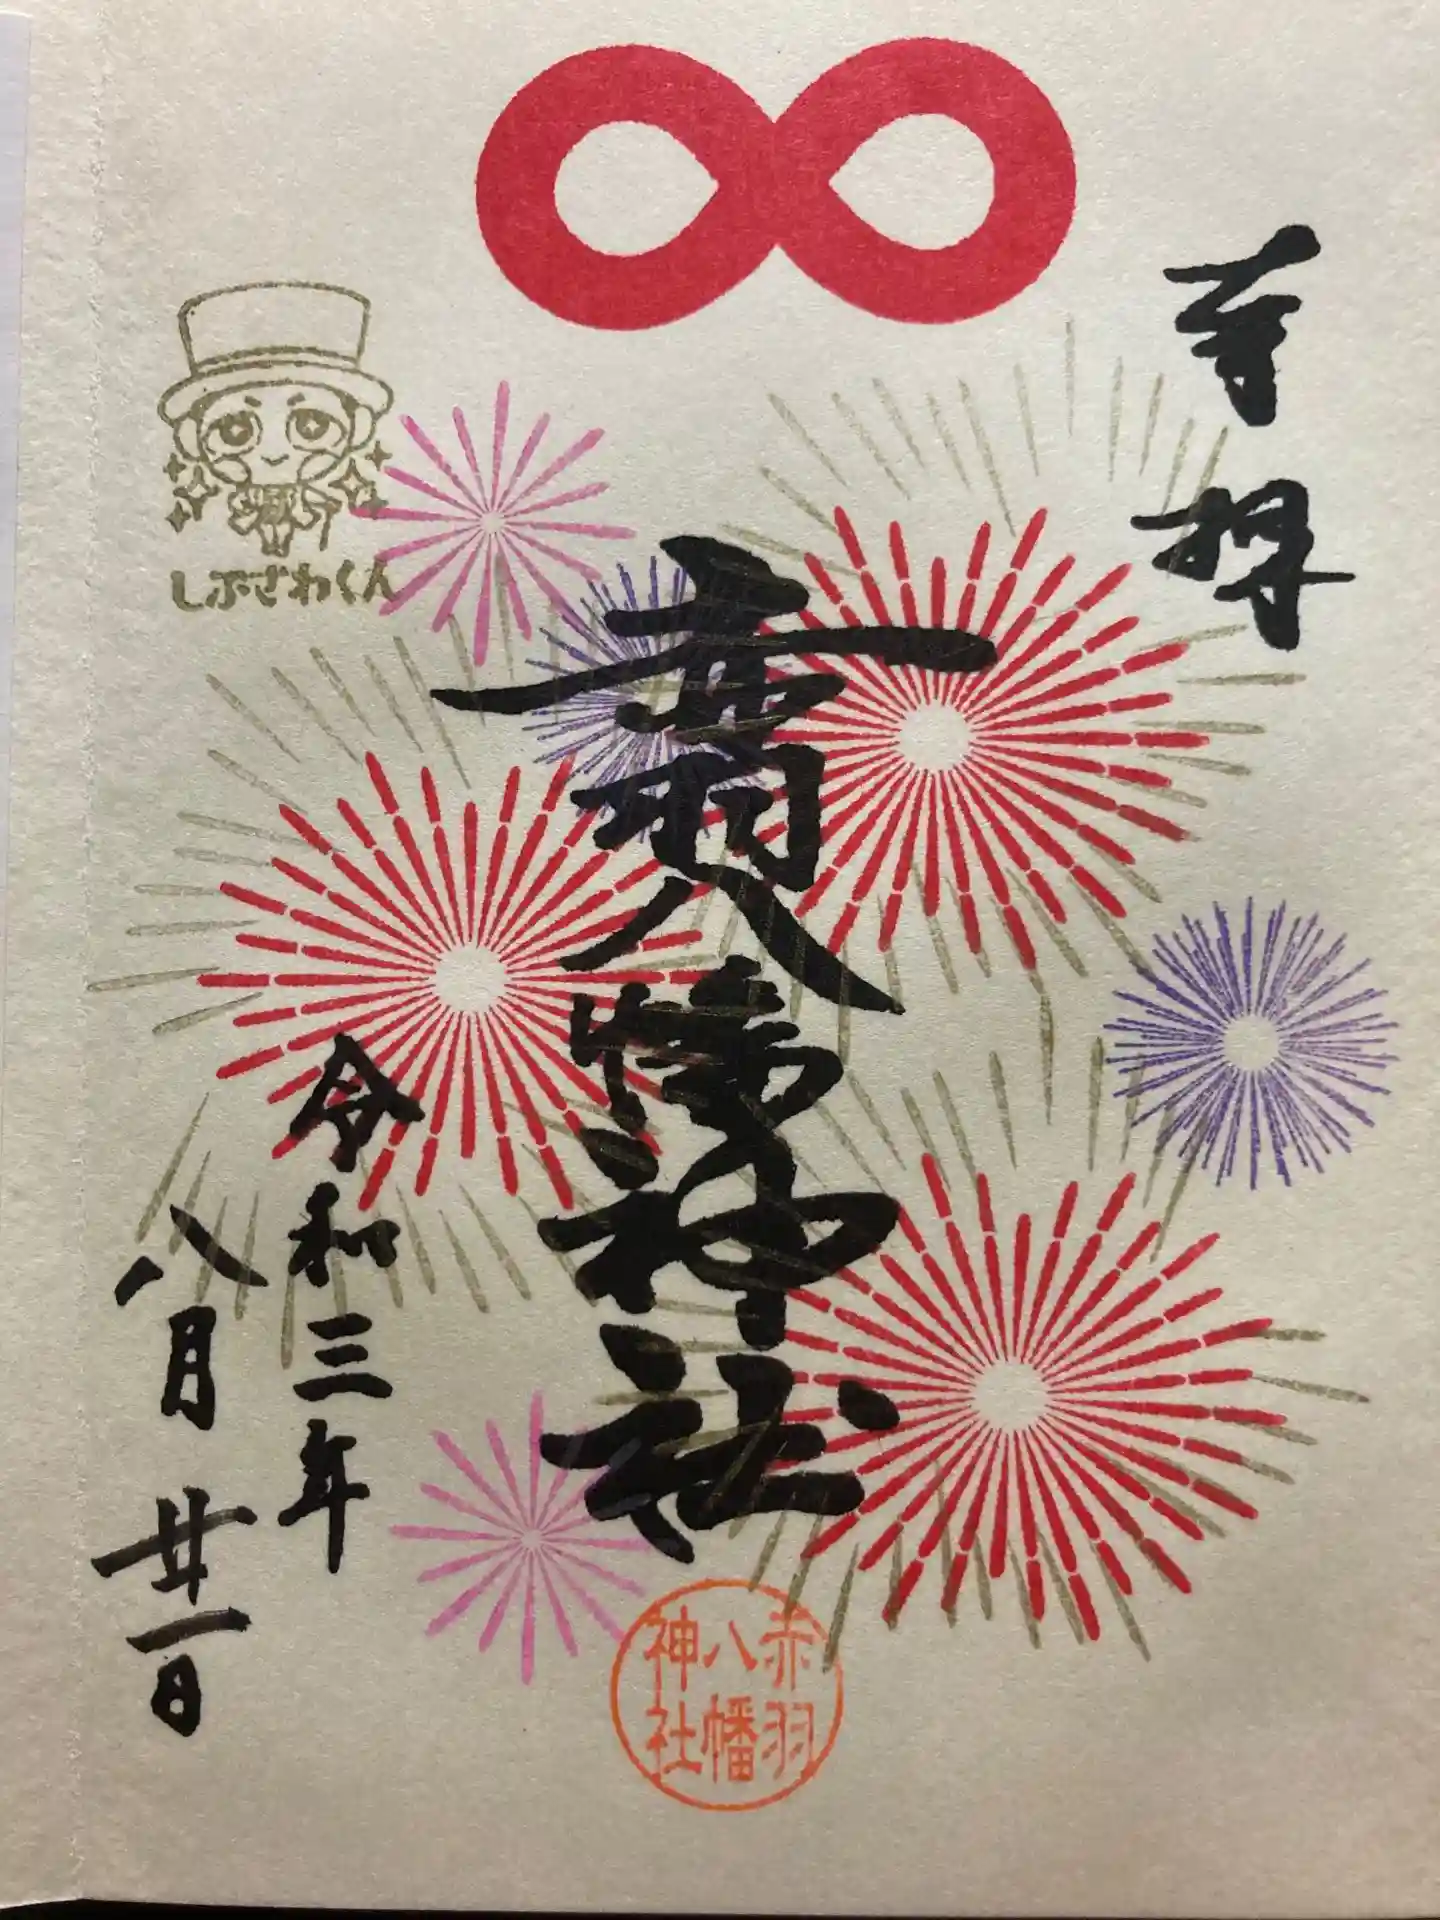 奉拝
赤羽八幡神社
令和三年
八月廿一日
しぶざわくん
赤羽
八幡
神社